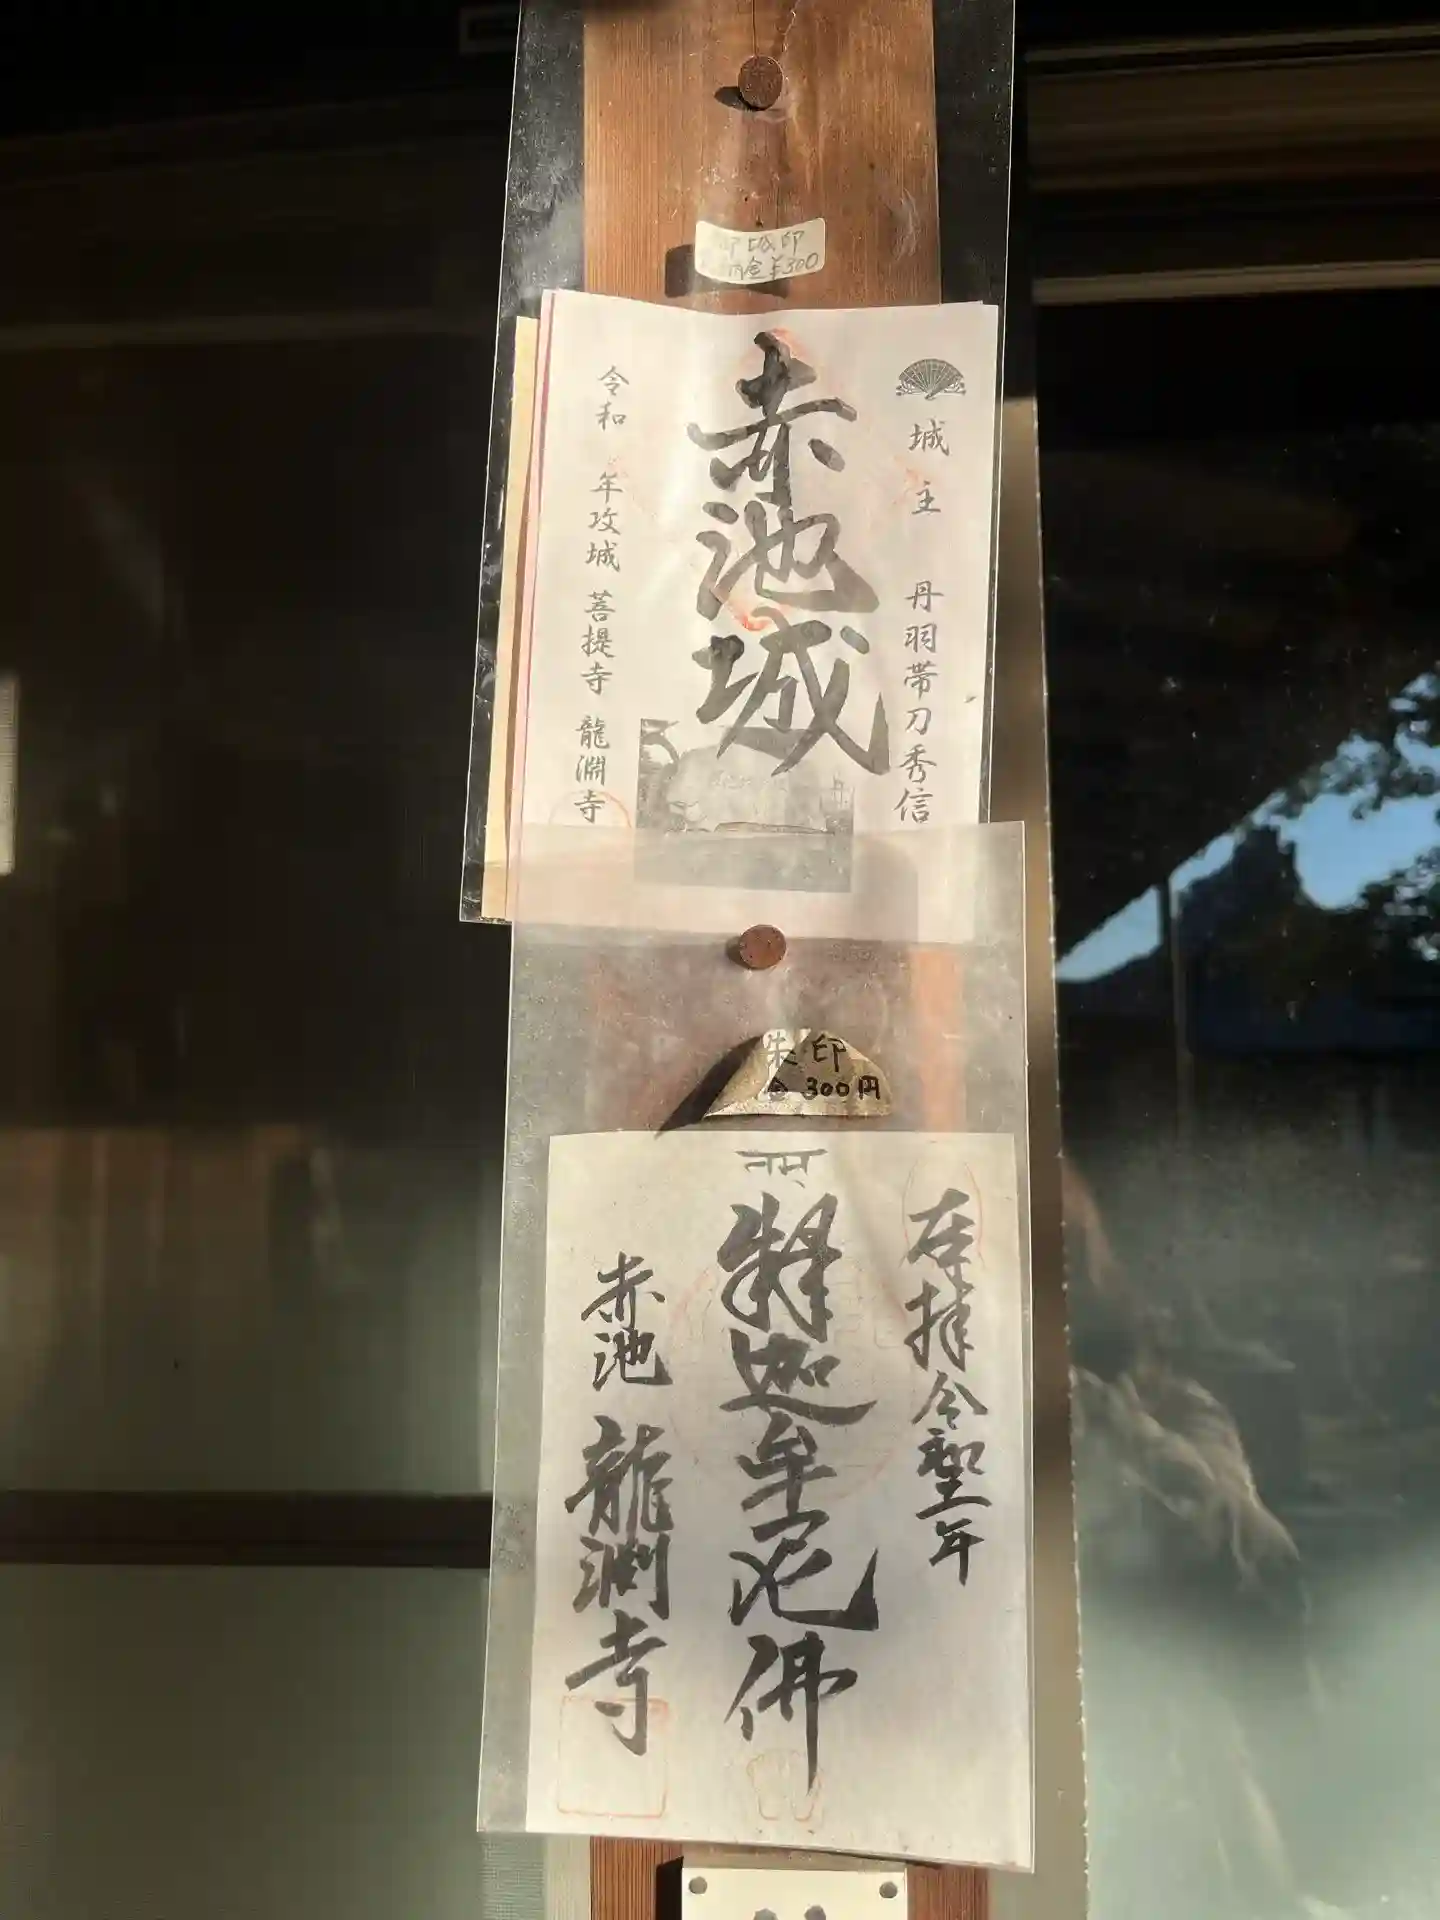 御城印
納金¥300
城主 丹羽帯刀秀信
赤池城
令和 年攻城 菩提寺 龍淵寺
朱印
金300円
नमः
奉拝 令和 年
釋迦牟尼佛
赤池 龍渕寺